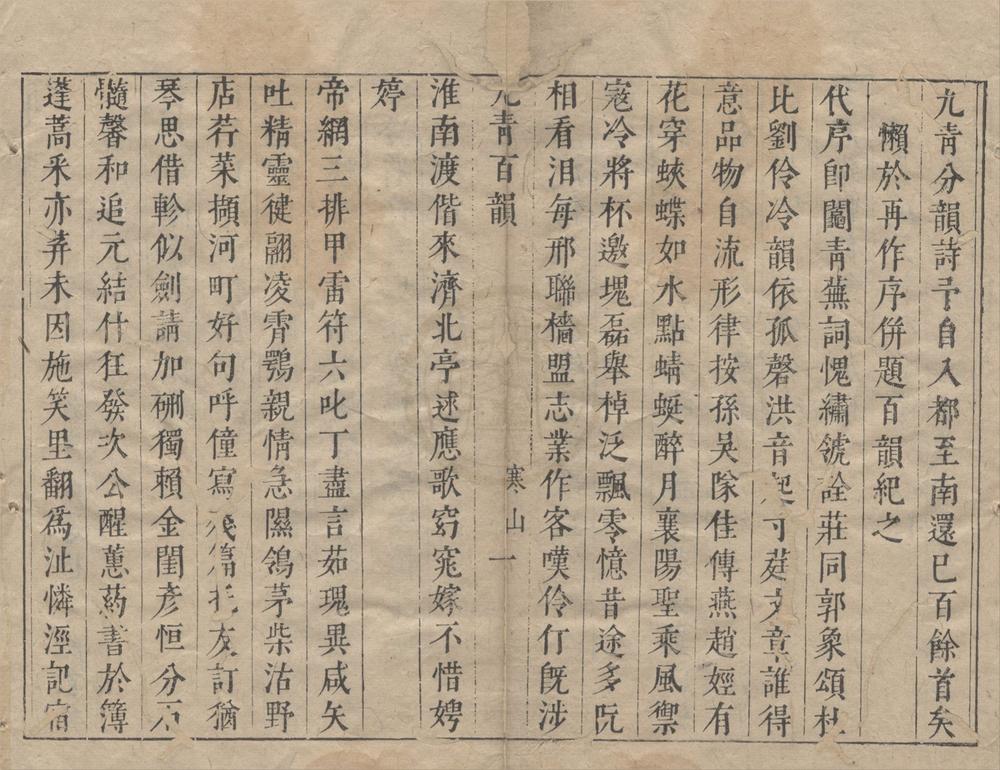 九青分韻詩予自入都至南還已百餘首矣
懶於再作序併題百韻紀之
代序卽闔青蕪詞愧繡虢詮莊同郭象頌杜
比劉伶冷韻依孤磬洪音起寸莛文章誰得
意品物自流形律按孫吳隊佳傳燕趙娙有
花穿蛺蝶如水點蜻蜓醉月襄陽聖乘風禦
寇冷將杯邀塊磊舉棹泛飄零憶昔途多阮
相看泪每邢聯檣盟志業作客嘆伶仃旣涉
九青百韻
寒山
一
淮南渡偕來濟北亭逑應歌窈窕嫁不惜娉
婷
帝網三排甲雷符六叱丁盡言茹瑰異咸矢
吐精靈健翮凌霄鶚親情急隰鴒茅柴沽野
店荇菜擷河町好句呼僮寫 友訂猶
琴思借軫似劍請加硎獨賴金閨彥恒分石
髓馨和追元結什狂發次公醒蕙葯書於簿
蓬蒿釆亦弄未因施笑里翻爲沚憐涇記宿